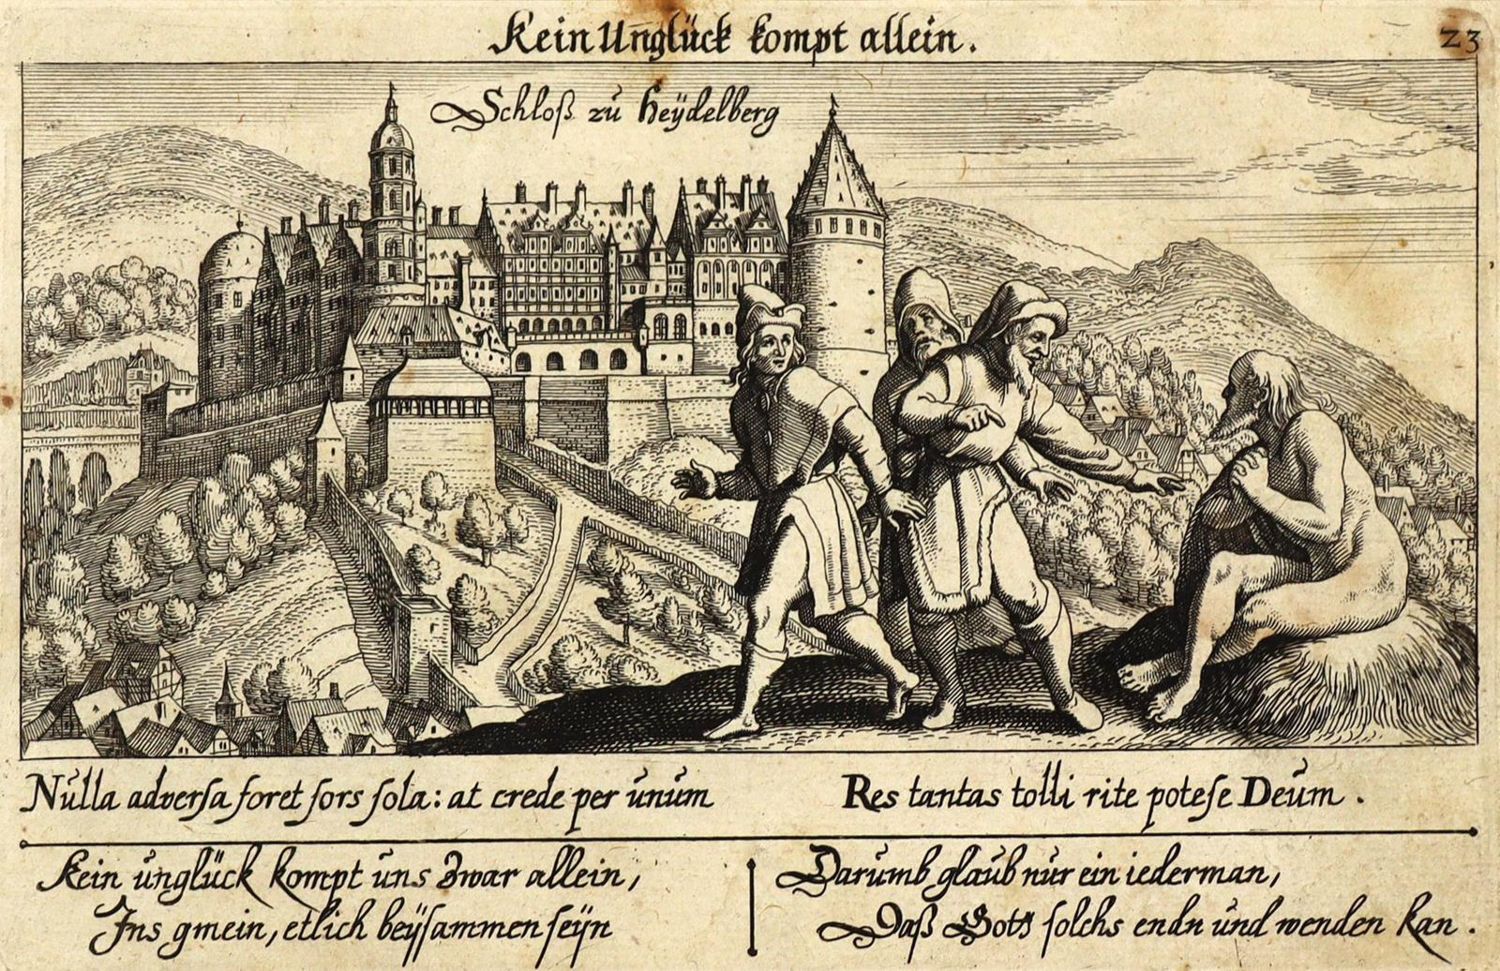 Kein Unglück kompt allein.
23
Schloß zu Heÿdelberg
Nulla adversa foret sors sola: at crede per unum
Res tantas tolli rite potese Deum.
Kein unglück kompt uns zwar allein,
Ins gmein, etlich beÿsammen seÿn
Darumb glaub nur ein iederman,
Daß Gott solchs endn und wenden kan.